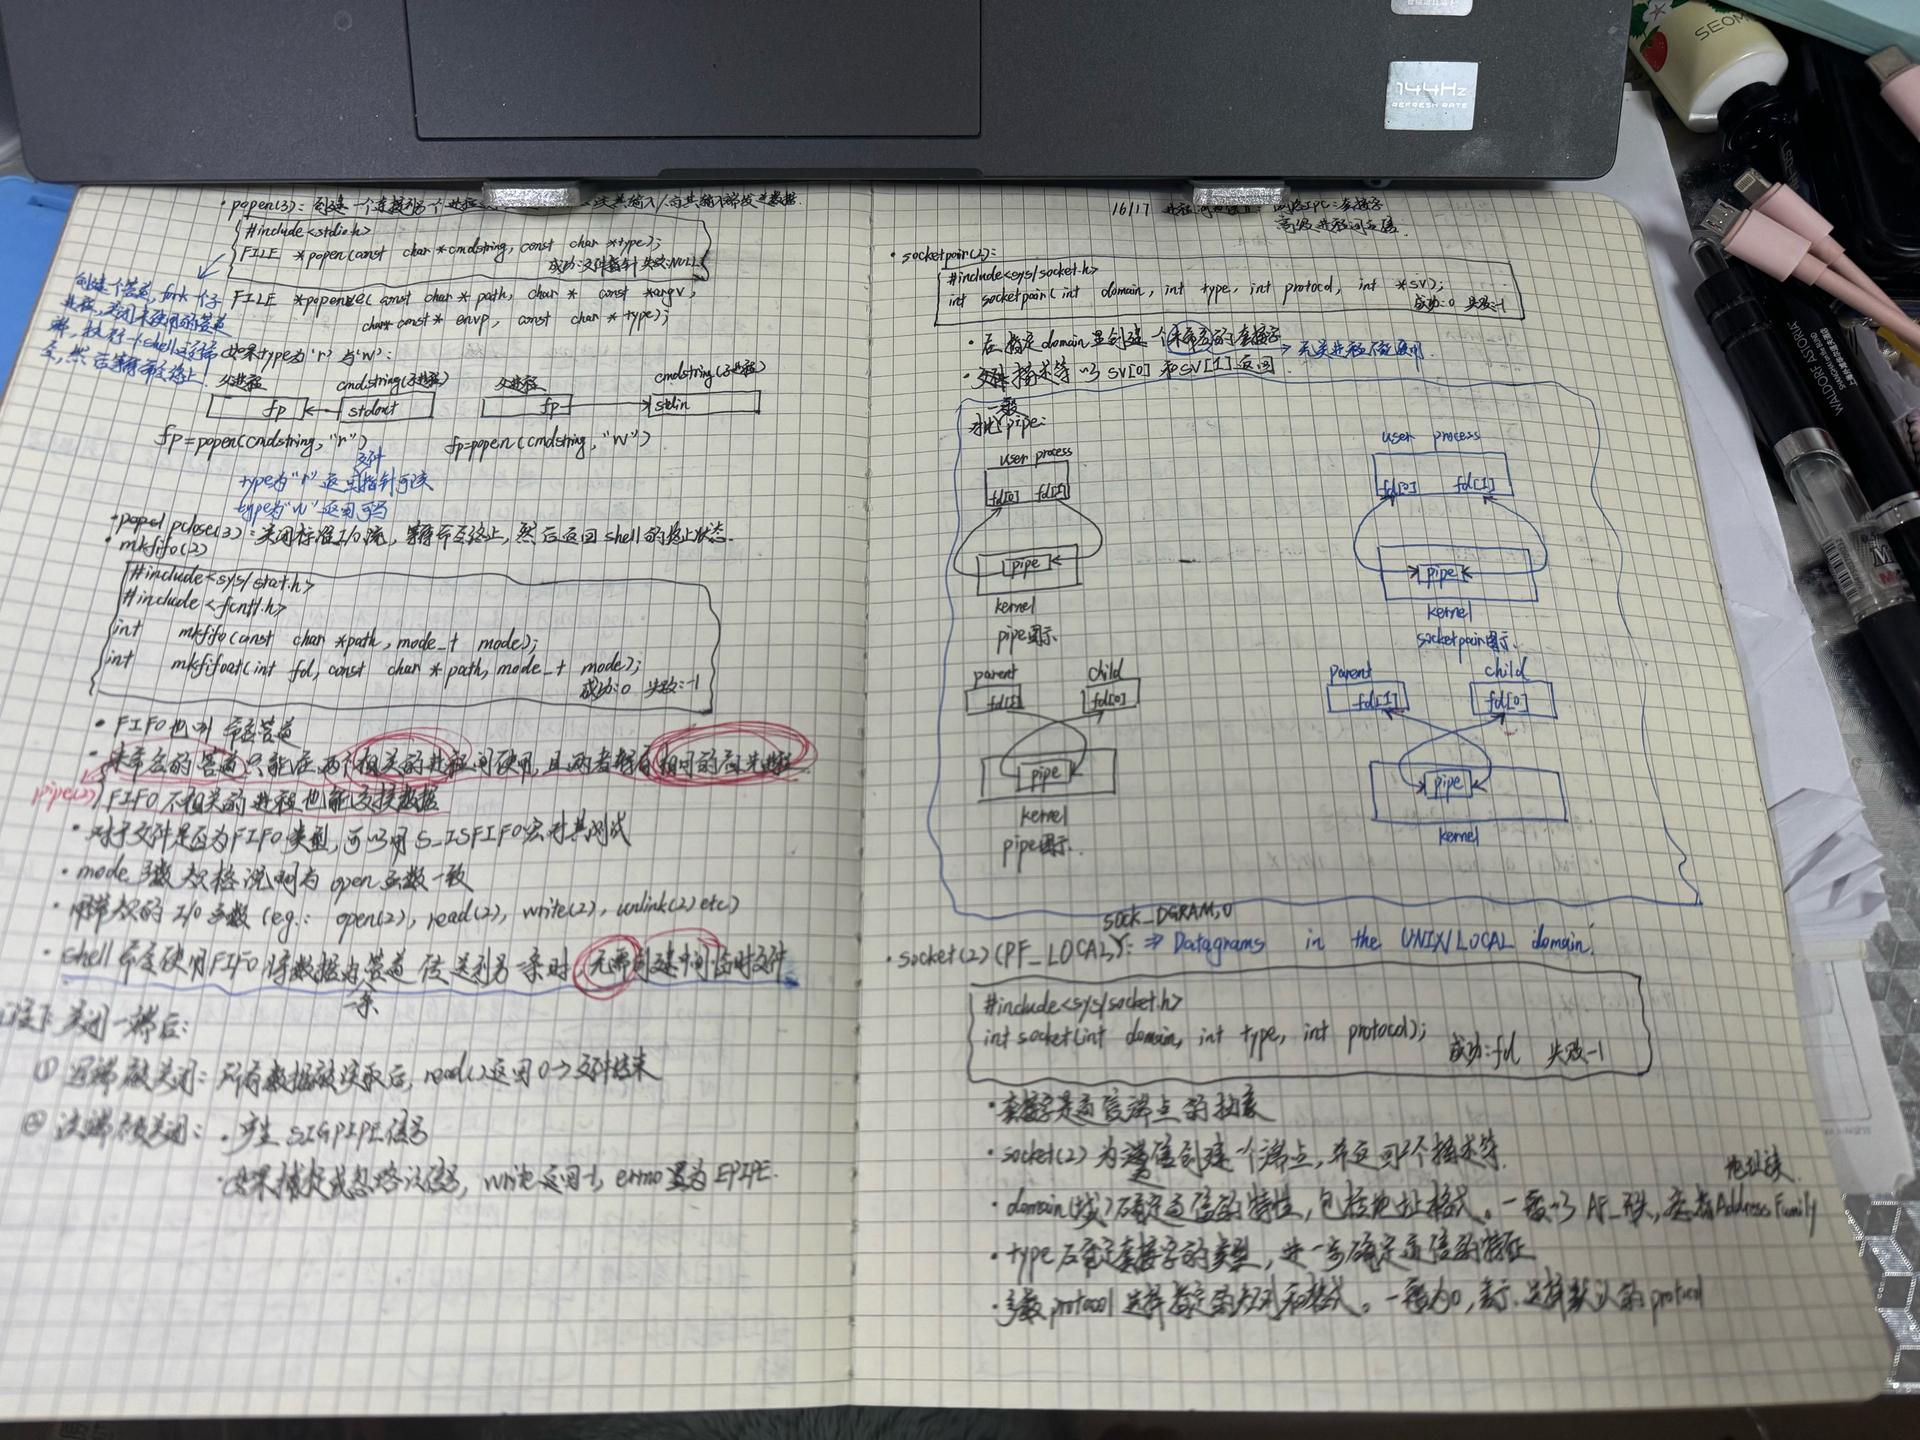 144Hz
REFRESH RATE
SEOM
WALDORF ASTORIA
SHANGHAI
• popen(3): 创建一个连接到另一个进程 读其输入/向其输入端发送数据.
#include<stdio.h>
FILE *popen(const char *cmdstring, const char *type);
成功:文件指针 失败:NULL
FILE *popenve(const char * path, char * const *argv,
char *const * envp, const char * type);
创建一个管道, fork一个子
进程, 关闭未使用的管道
端, 执行一个shell运行命
令, 然后等待命令终止.
如果type为'r'与'w':
父进程 cmdstring(子进程) 父进程 cmdstring(子进程)
fp stdout fp stdin
fp=popen(cmdstring,"r") fp=popen(cmdstring,"w")
文件
type为"r"返回指针可读
type为"w"返回可写
• popel pclose(3): 关闭标准I/O流, 等待命令终止, 然后返回shell的终止状态.
• mkfifo(2)
#include<sys/stat.h>
#include<fcntl.h>
int mkfifo(const char *path, mode_t mode);
int mkfifoat(int fd, const char * path, mode_t mode);
成功:0 失败:-1
• FIFO也叫 命名管道
• 未命名的管道只能在两个相关的进程间使用, 且两者拥有相同的祖先进程
pipe(2) FIFO 不相关的进程也能交换数据
• 对于文件是否为FIFO类型, 可以用S_ISFIFO宏对其测试
• mode 参数 规格说明与 open函数一致
• 用常规的 I/O 函数 (eg.: open(2), read(2), write(2), unlink(2) etc)
• shell 命令使用FIFO将数据由管道传送到另一条时, 无需创建中间临时文件
一条
关闭一端后:
① 写端被关闭: 所有数据被读取后, read()返回0→文件结束
② 读端被关闭: • 产生 SIGPIPE信号
• 如果捕捉或忽略该信号, write返回-1, errno置为EPIPE.
16/17 进程间通信 网络IPC:套接字
高级进程间通信.
• socketpair(2):
#include<sys/socket.h>
int socketpair(int domain, int type, int protocol, int *sv);
成功:0 失败-1
• 在指定domain里创建一个未命名的套接字 → 无关进程不能使用.
• 文件描述符以 sv[0] 和sv[1]返回.
一般
对比pipe:
user process
fd[0] fd[1]
pipe
kernel
pipe图示.
user process
fd[0] fd[1]
pipe
kernel
socketpair图示.
parent child
fd[1] fd[0]
pipe
kernel
pipe图示.
parent child
fd[1] fd[0]
pipe
kernel
SOCK_DGRAM,0
• socket(2)(PF_LOCAL): ⇒ Datagrams in the UNIX/LOCAL domain.
#include<sys/socket.h>
int socket(int domain, int type, int protocol);
成功:fd 失败-1
• 套接字是通信端点的抽象
• socket(2) 为通信创建一个端点, 并返回一个描述符.
地址族
• domain(域)确定通信的特性, 包括地址格式。一般以 AF_开头, 意指Address Family
• type 确定套接字的类型, 进一步确定通信的特征
• 参数 protocol 选择指定的 和格式。一般为0, 表示 选择默认的 protocol